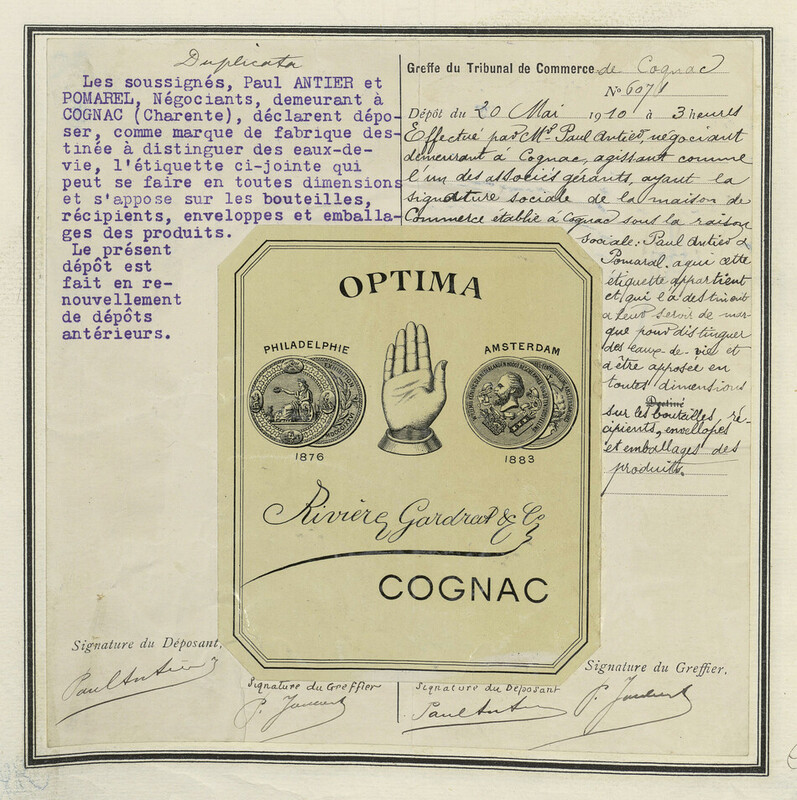 Duplicata
Les soussignés, Paul ANTIER et
POMAREL, Négociants, demeurant à
COGNAC (Charente), déclarent dépo-
ser, comme marque de fabrique des-
tinée à distinguer des eaux-de-
vie, l'étiquette ci-jointe qui
peut se faire en toutes dimensions
et s'appose sur les bouteilles,
récipients, enveloppes et emballa-
ges des produits.
Le présent
dépôt est
fait en re-
nouvellement
de dépôts
antérieurs.
Greffe du Tribunal de Commerce de Cognac
No 6071
Dépôt du 20 Mai 1910 à 3 heures
Effectué par Mr Paul Antier, négociant
demeurant à Cognac, agissant comme
l'un des associés gérants, ayant la
signature sociale de la maison de
Commerce établie à Cognac sous la raison
sociale: Paul Antier &
Pomarel, a qui cette
étiquette appartient
et qui l'a destinent
a leur servir de mar-
que pour distinguer
des eaux-de-vie et
d'être apposée en
toutes dimensions
Destiné
sur les bouteilles, ré-
cipients, enveloppes
et emballages des
produits.
OPTIMA
PHILADELPHIE
AMSTERDAM
1876
1883
Rivière Gardrat & Co
COGNAC
Signature du Déposant,
Paul Antier
Signature du Greffier
Signature du Déposant
Paul Antier
Signature du Greffier.